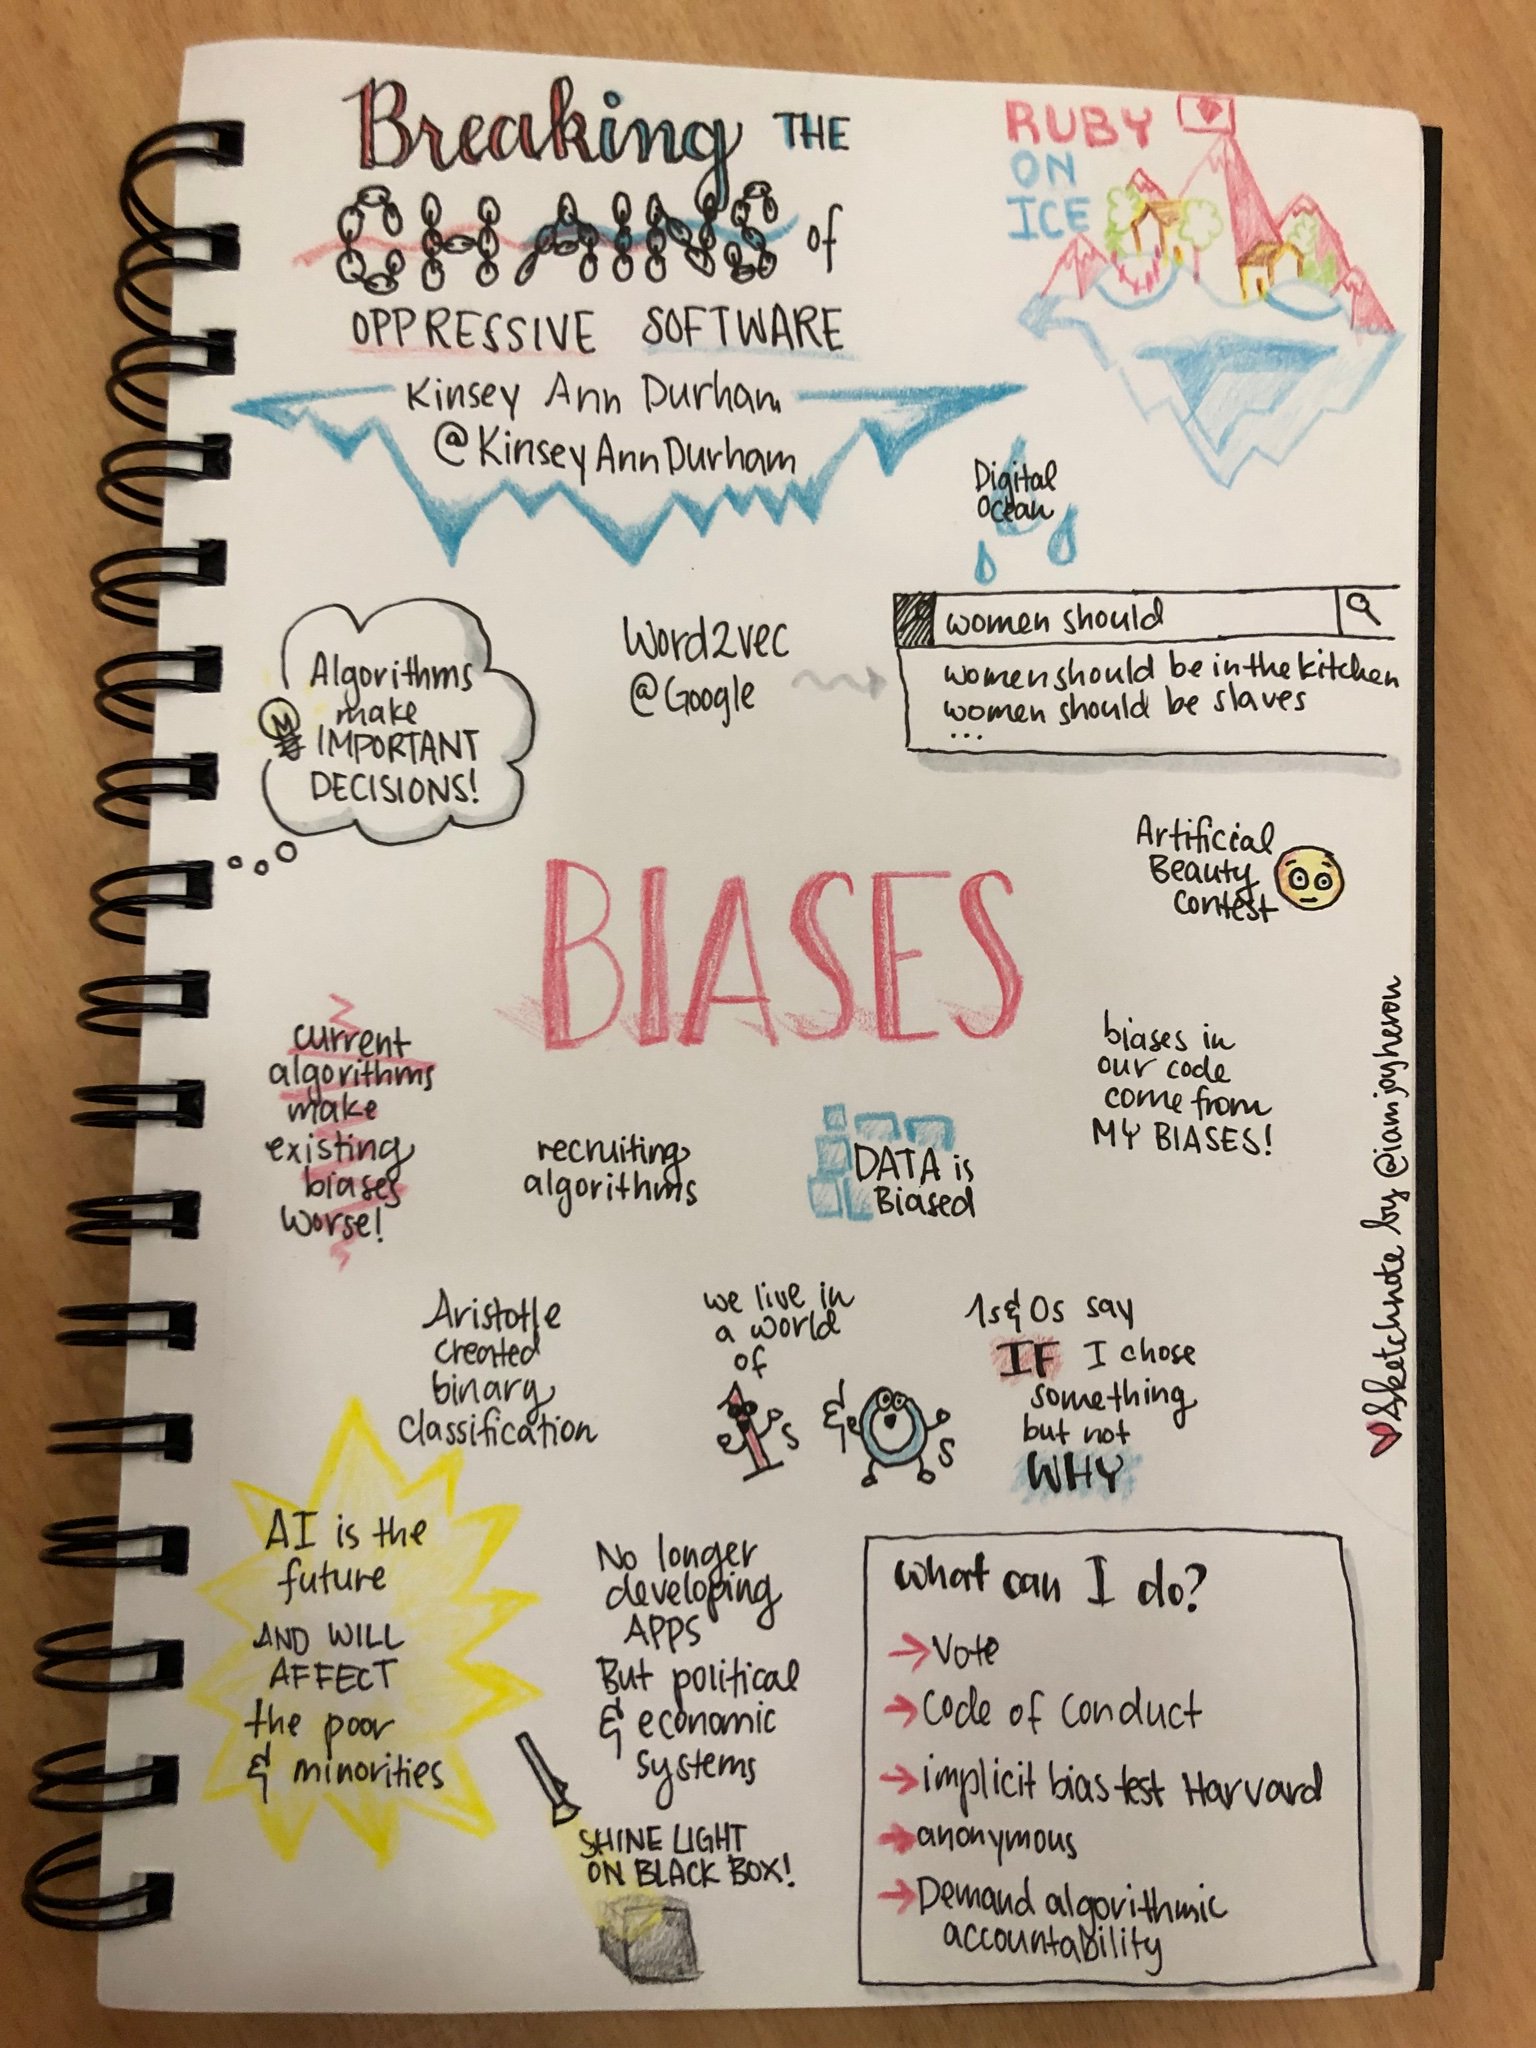 Breaking THE
CHAINS of
OPPRESSIVE SOFTWARE
Kinsey Ann Durham
@KinseyAnnDurham
RUBY
ON
ICE
Digital
Ocean
Algorithms
make
IMPORTANT
DECISIONS!
Word2vec
@Google
women should
women should be in the kitchen
women should be slaves
...
Artificial
Beauty
Contest
BIASES
current
algorithms
make
existing
biases
worse!
recruiting
algorithms
DATA is
Biased
biases in
our code
come from
MY BIASES!
Sketchnote by @iamjoyheron
Aristotle
created
binary
classification
we live in
a world
of
1s & 0s
1s & 0s say
IF I chose
something
but not
WHY
AI is the
future
AND WILL
AFFECT
the poor
& minorities
No longer
developing
APPS
But political
& economic
systems
SHINE LIGHT
ON BLACK BOX!
What can I do?
→ Vote
→ Code of Conduct
→ implicit bias test Harvard
→ anonymous
→ Demand algorithmic
accountability